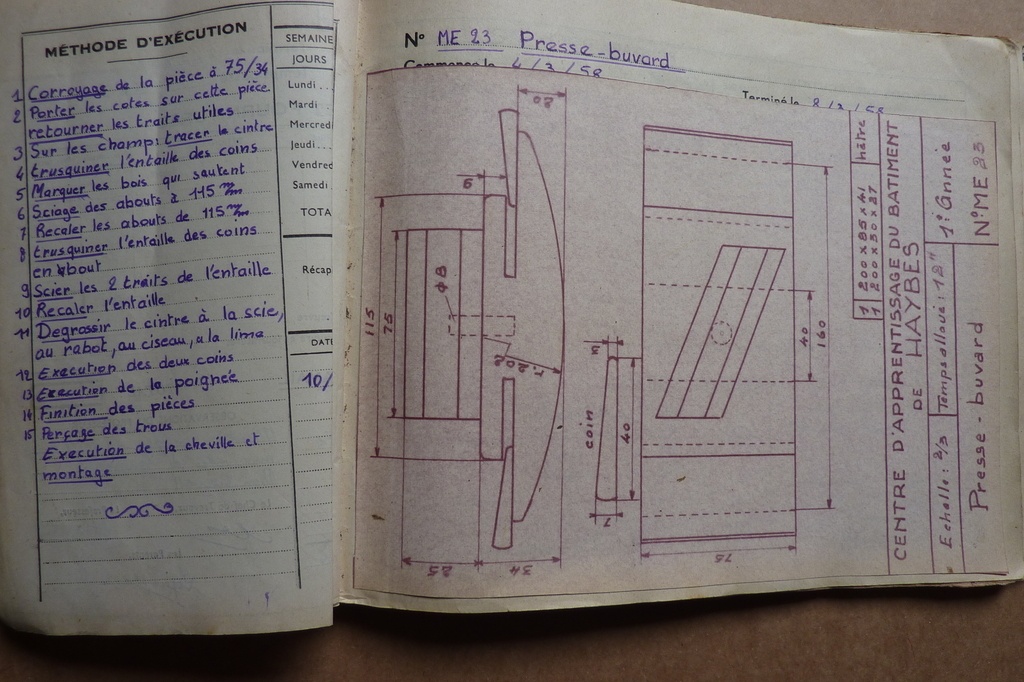 MÉTHODE D'EXÉCUTION
1 Corroyage de la pièce à 75/34
2 Porter les cotes sur cette pièce
retourner les traits utiles
3 Sur les champs: tracer le cintre
4 trusquiner l'entaille des coins
5 Marquer les bois qui sautent
6 Sciage des abouts à 115 m/m
7 Recaler les abouts de 115 m/m
8 trusquiner l'entaille des coins
en about
9 Scier les 2 traits de l'entaille
10 Recaler l'entaille
11 Degrossir le cintre à la scie,
au rabot, au ciseau, a la lime
12 Execution des deux coins
13 Execution de la poignée
14 Finition des pièces
15 Perçage des trous
Execution de la cheville et
montage
SEMAINE
JOURS
Lundi
Mardi
Mercred
Jeudi
Vendred
Samedi
TOTA
Récap
DATE
10/
N° ME 23 Presse-buvard
Commencé le 4/3/58
Terminé le 8/3/58
20
9
115
75
ø8
25
34
coin
3
40
7
40
160
75
1 200 x 85 x 41 hêtre
1 200 x 30 x 27
CENTRE D'APPRENTISSAGE DU BATIMENT
DE HAYBES
Echelle: 2/3 Temps alloué: 12H 1° Année
Presse-buvard N° ME 23